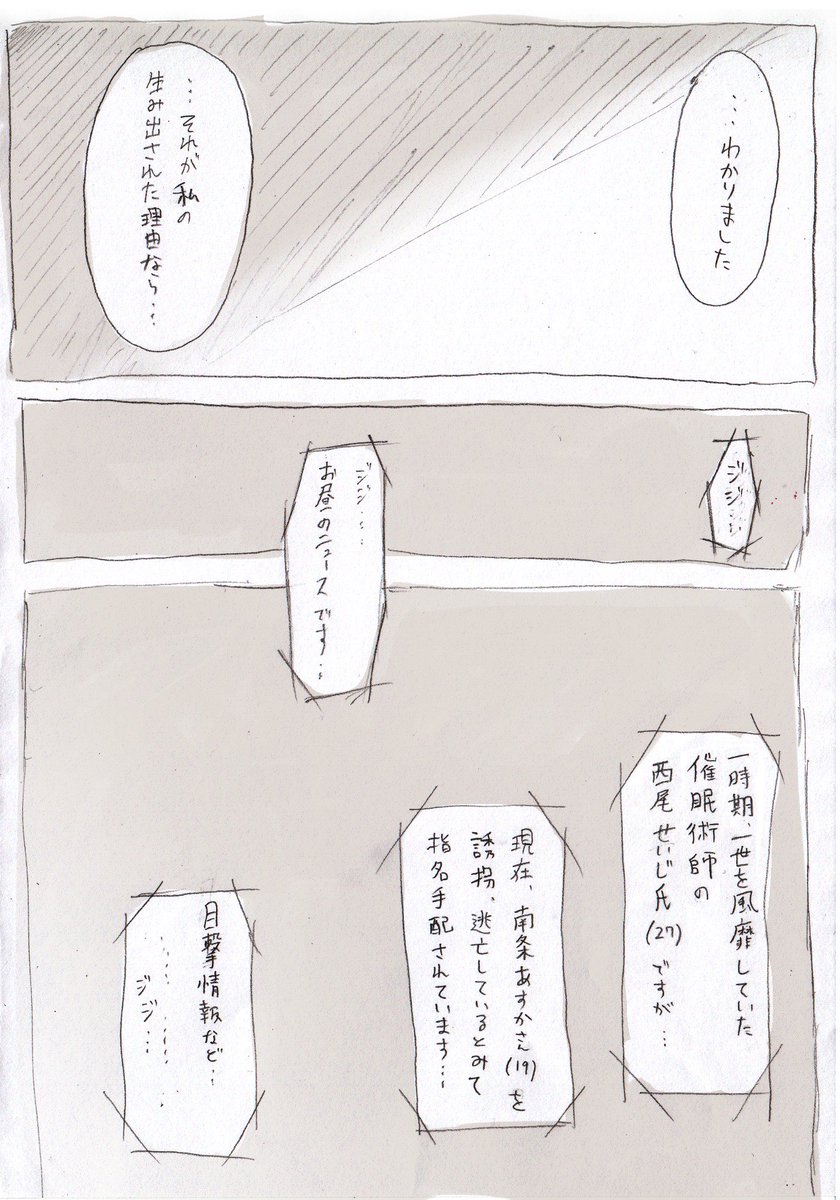 …わかりました
…それが私の
生み出された理由なら…
ジジ…
ジジ…
お昼のニュースです…
一時期、一世を風靡していた
催眠術師の
西尾せいじ氏(27)ですが…
現在、南条あすかさん(19)を
誘拐、逃亡しているとみて
指名手配されています…
目撃情報など…
…… ……
ジジ…